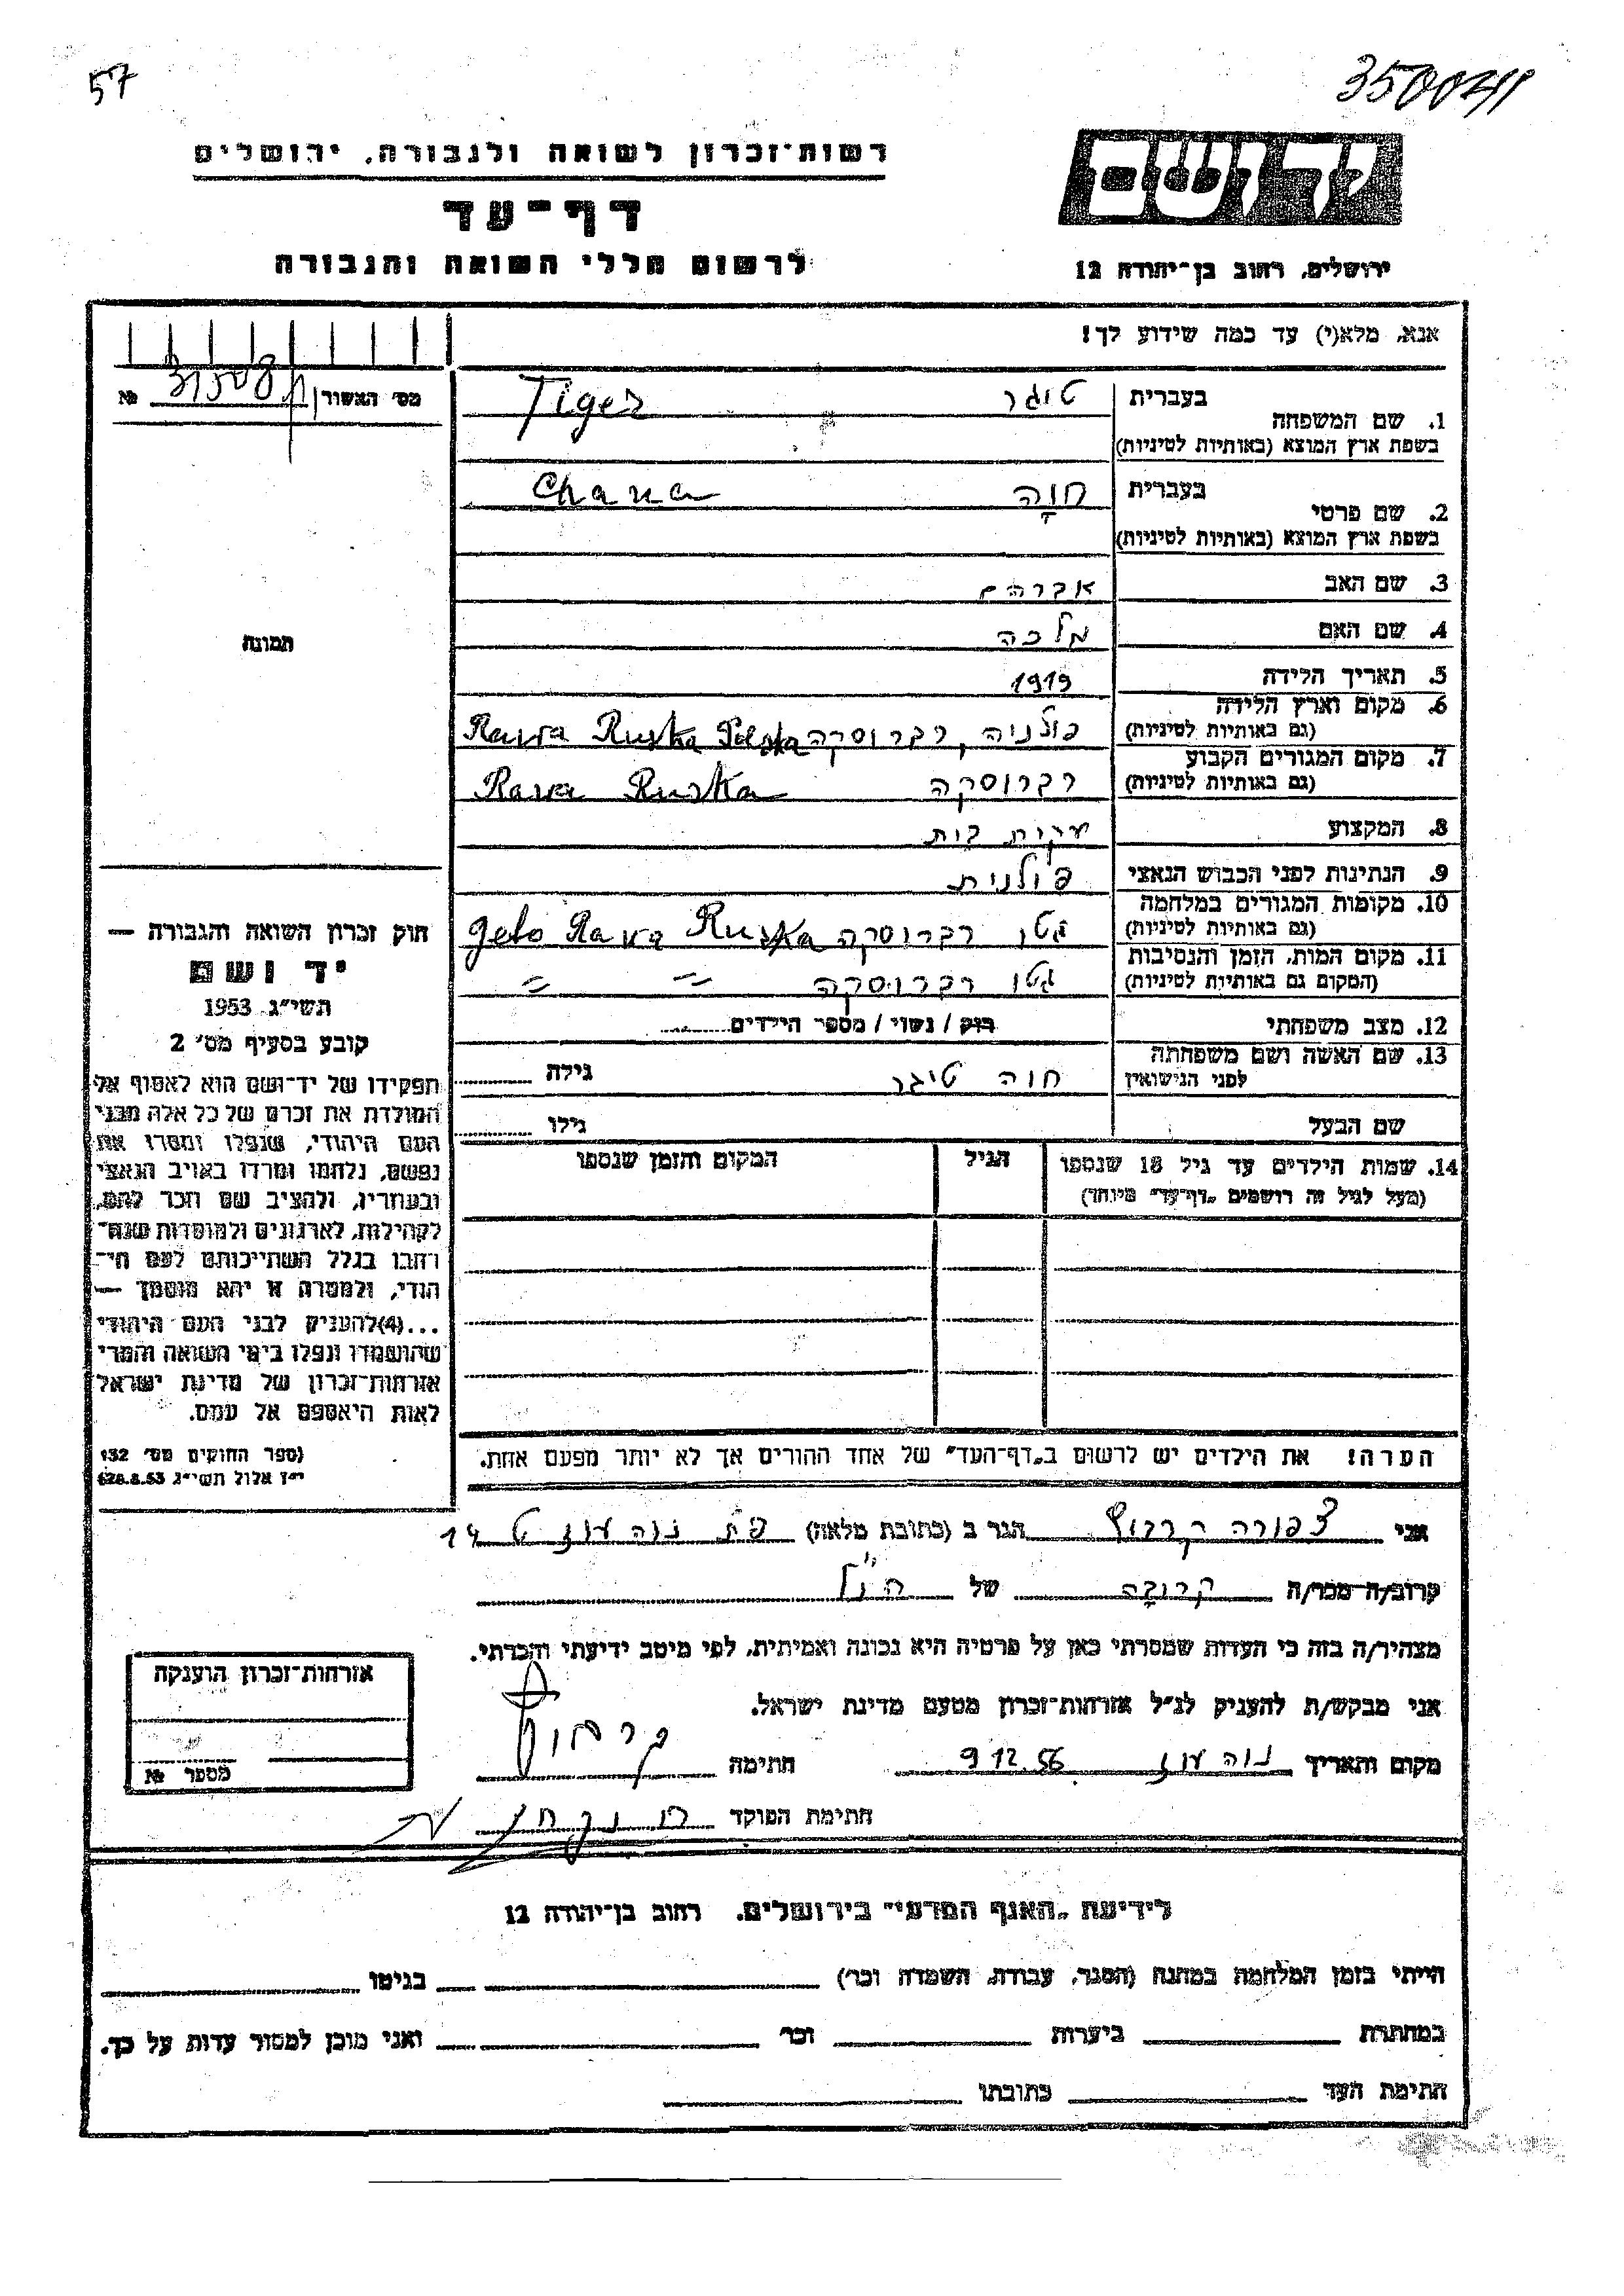 57
רשות־זכרון לשואה ולגבורה, ירושלים
דף־עד
לרשום חללי השואה והגבורה
יד ושם
ירושלים, רחוב בן־יהודה 12
אנא, מלא(י) עד כמה שידוע לך!
מס' האשור № 
1. שם המשפחה בעברית טיגר Tiger
בשפת ארץ המוצא (באותיות לטיניות)
2. שם פרטי בעברית חוה Chana
בשפת ארץ המוצא (באותיות לטיניות)
3. שם האב אברהם
4. שם האם מלכה
5. תאריך הלידה 1919
6. מקום וארץ הלידה פולניה, רברוסקה Rawa Ruska Polska
(גם באותיות לטיניות)
7. מקום המגורים הקבוע רברוסקה Rawa Ruska
(גם באותיות לטיניות)
8. המקצוע עקרת בית
9. הנתינות לפני הכבוש הנאצי פולנית
10. מקומות המגורים במלחמה גטו רברוסקה geto Rawa Ruska
(גם באותיות לטיניות)
11. מקום המות, הזמן והנסיבות גטו רברוסקה = =
(המקום גם באותיות לטיניות)
12. מצב משפחתי רוק / נשוי / מספר הילדים
13. שם האשה ושם משפחתה חוה טיגר גילה
לפני הנישואין
שם הבעל גילו
14. שמות הילדים עד גיל 18 שנספו הגיל המקום והזמן שנספו
(מעל לגיל זה רושמים „דף־עד" מיוחד)
הערה! את הילדים יש לרשום ב„דף־העד" של אחד ההורים אך לא יותר מפעם אחת.
תמונה
חוק זכרון השואה והגבורה —
יד ושם
תשי"ג 1953
קובע בסעיף מס' 2
תפקידו של יד־ושם הוא לאסוף אל
המולדת את זכרם של כל אלה מבני
העם היהודי, שנפלו ומסרו את
נפשם, נלחמו ומרדו באויב הנאצי
ובעוזריו, ולהציב שם וזכר להם,
לקהילות, לארגונים ולמוסדות שנח־
רבו בגלל השתייכותם לעם הי־
הודי, ולמטרה זו יהא מוסמך —
...(4)להעניק לבני העם היהודי
שהושמדו ונפלו בימי השואה והמרי
אזרחות־זכרון של מדינת ישראל
לאות היאספם אל עמם.
(ספר החוקים מס' 132
י"ז אלול תשי"ג 28.8.53)
אני צפורה הגר ב (כתובת מלאה) פת נוה עוז ט 14
קרוב/ה מכר/ה קרובה של הנ"ל
מצהיר/ה בזה כי העדות שמסרתי כאן על פרטיה היא נכונה ואמיתית, לפי מיטב ידיעתי והכרתי.
אני מבקש/ת להעניק לנ"ל אזרחות־זכרון מטעם מדינת ישראל.
מקום ותאריך נוה עוז 9.12.56 חתימה
חתימת הפוקד
אזרחות־זכרון הוענקה
מספר №
לידיעת „האגף המדעי" בירושלים, רחוב בן־יהודה 12
הייתי בזמן המלחמה במחנה (הסגר, עבודה, השמדה וכו') בגיטו
במחתרת ביערות וכו' ואני מוכן למסור עדות על כך.
חתימת העד כתובתו